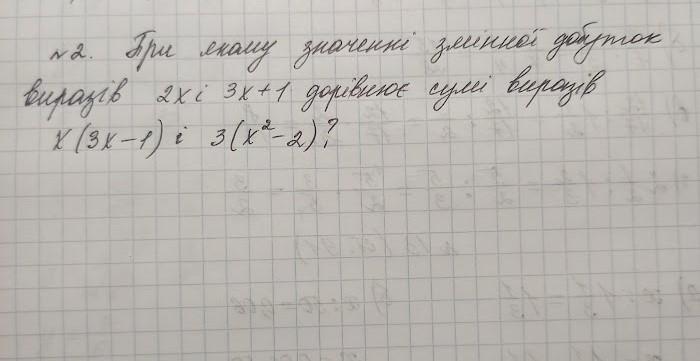 №2. При якому значенні змінної добуток
виразів 2x і 3x+1 дорівнює сумі виразів
x(3x-1) і 3(x²-2)?